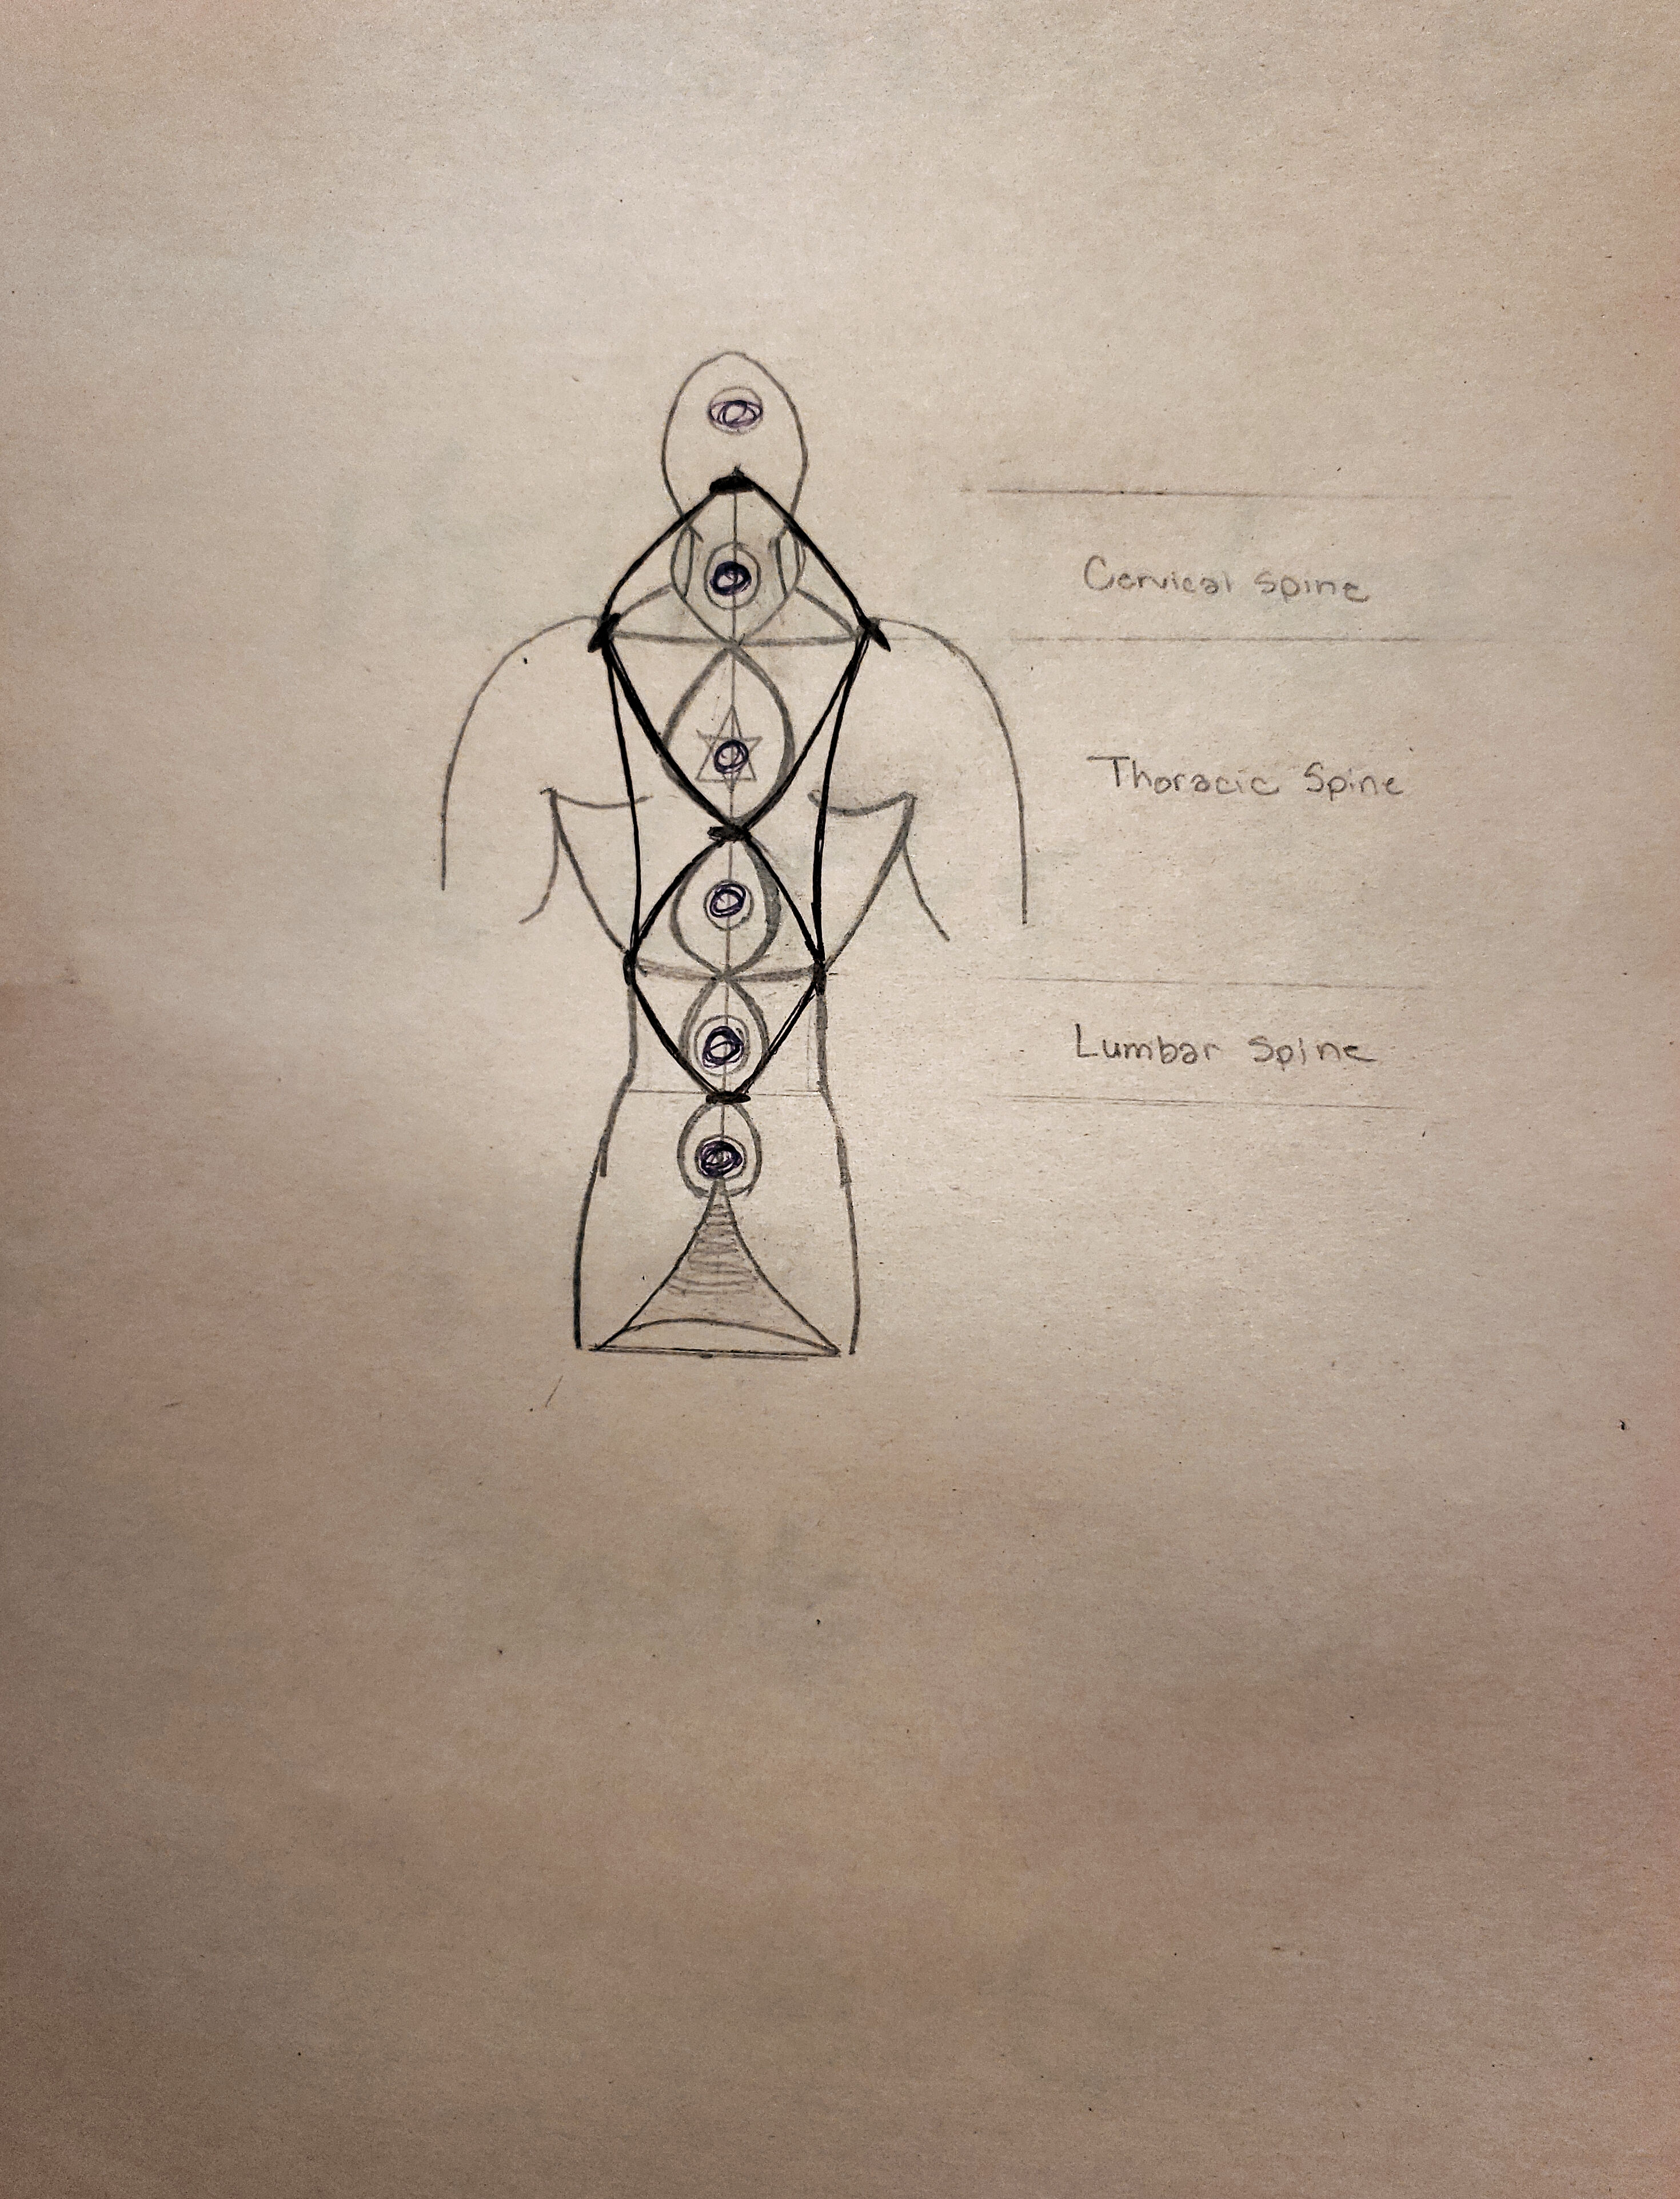 Cervical Spine
Thoracic Spine
Lumbar Spine